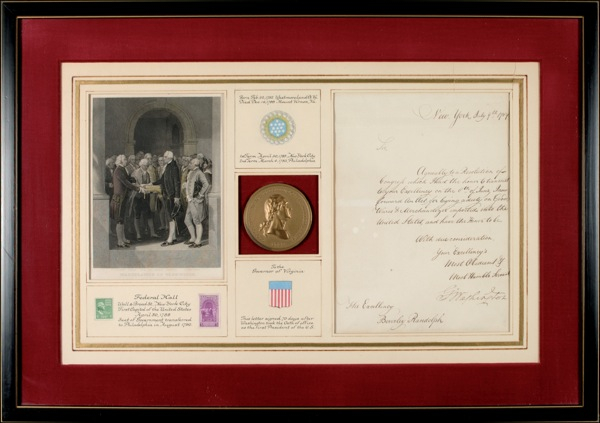 Born Feb. 22, 1732, Westmoreland Co. Va.
Died Dec. 14, 1799, Mount Vernon, Va.
1st Term April 30, 1789, New York City
2nd Term March 4, 1793, Philadelphia
To the
Governor of Virginia
This letter signed, 70 days after
Washington took the Oath of office
as the First President of the U.S.
Federal Hall
Wall & Broad St. New York City
First Capitol of the United States
April 30, 1789
Seat of Government transferred
to Philadelphia in August 1790.
New York, July 9th 1789
Sir
Agreeably to a Resolution of
Congress which I had the honor to transmit
to your Excellency on the of June, I now
forward the Act for laying a duty on Goods
Wares & Merchandizes imported into the
United States and have the Honor to be
With due consideration
Your Excellency's
Most Obedient &
Most Humble Servant
His Excellency
Beverley Randolph